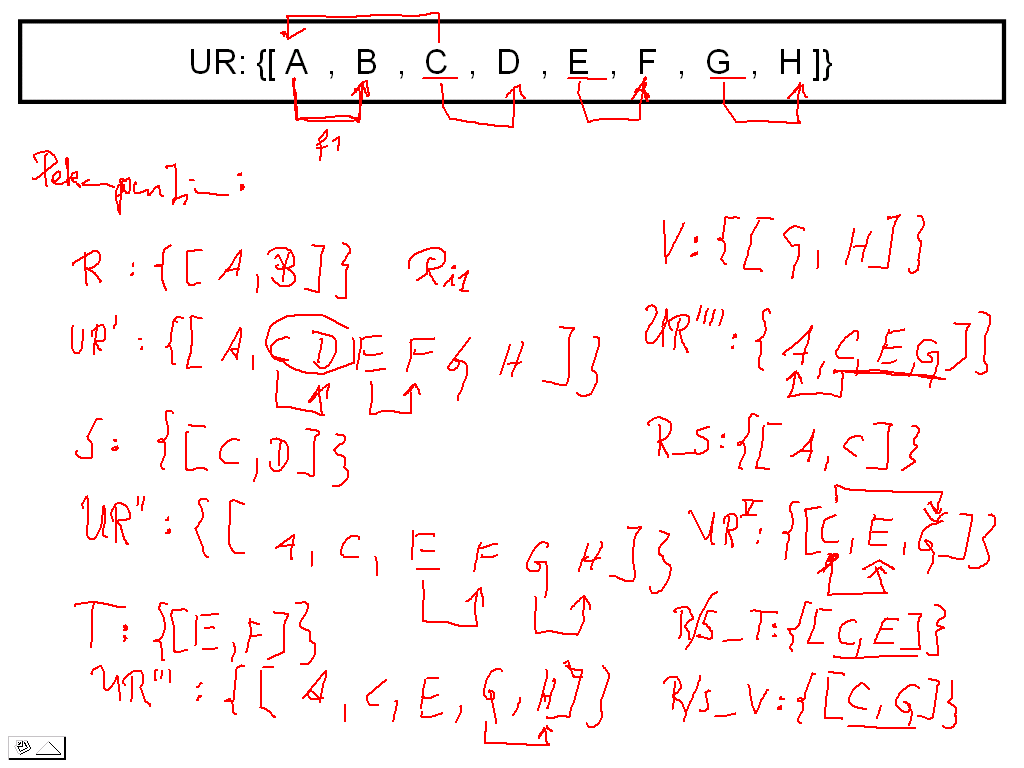 UR: {[ A , B , C , D , E , F , G , H ]}
f1
R : {[ A , B ]} Ri1
UR' : {[ A, C D E F G H ]}
S : {[ C, D ]}
UR'' : {[ A, C, E F G H ]}
T : {[ E, F ]}
UR''' : {[ A, C, E, G, H ]}
V : {[ G, H ]}
UR'''' : { A, C, E, G ]}
R_S : {[ A, C ]}
UR^V : {[ C, E, G ]}
R/S_T : {[ C, E ]}
R/S_V : {[ C, G ]}